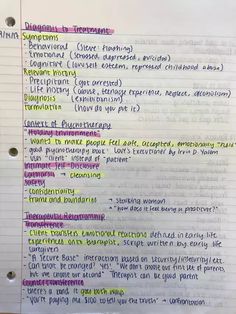 Diagnosis to Treatment
Symptoms
- Behavioral (Steve: flashing)
- Emotional (stressed, depressed, suicidal)
- Cognitive (low self esteem, repressed childhood abuse)
Relevant history
- Precipitant (got arrested)
- Life history (abuse, teenage experience, neglect, alcoholism)
Diagnosis (exhibitionism)
Formulation (how do you put it)
Context of Psychotherapy
"Holding Environment"
- Wants to make people feel safe, accepted, emotionally "held"
- good psychotherapy book: "Love's Executioner" by Irvin D. Yalom
- Use "client" instead of "patient"
Intimate Self-Disclosure
Catharsis → cleansing
Safety
- confidentiality
- frame and boundaries → Striking woman
- "how does it feel being a
Therapeutic Relationship
Transference
- Client transfers emotional reactions defined in early life
experiences onto therapist, script written by early life
caregivers
- "A Secure Base" interactions based on security/insecurity/etc.
Can that be changed? yes! "We don't choose our first set of parents,
but we choose our second" Therapist can be good parent
Countertransference
- there's a it goes both ways
- "You're paying me $100 to tell you the truth" → confrontation